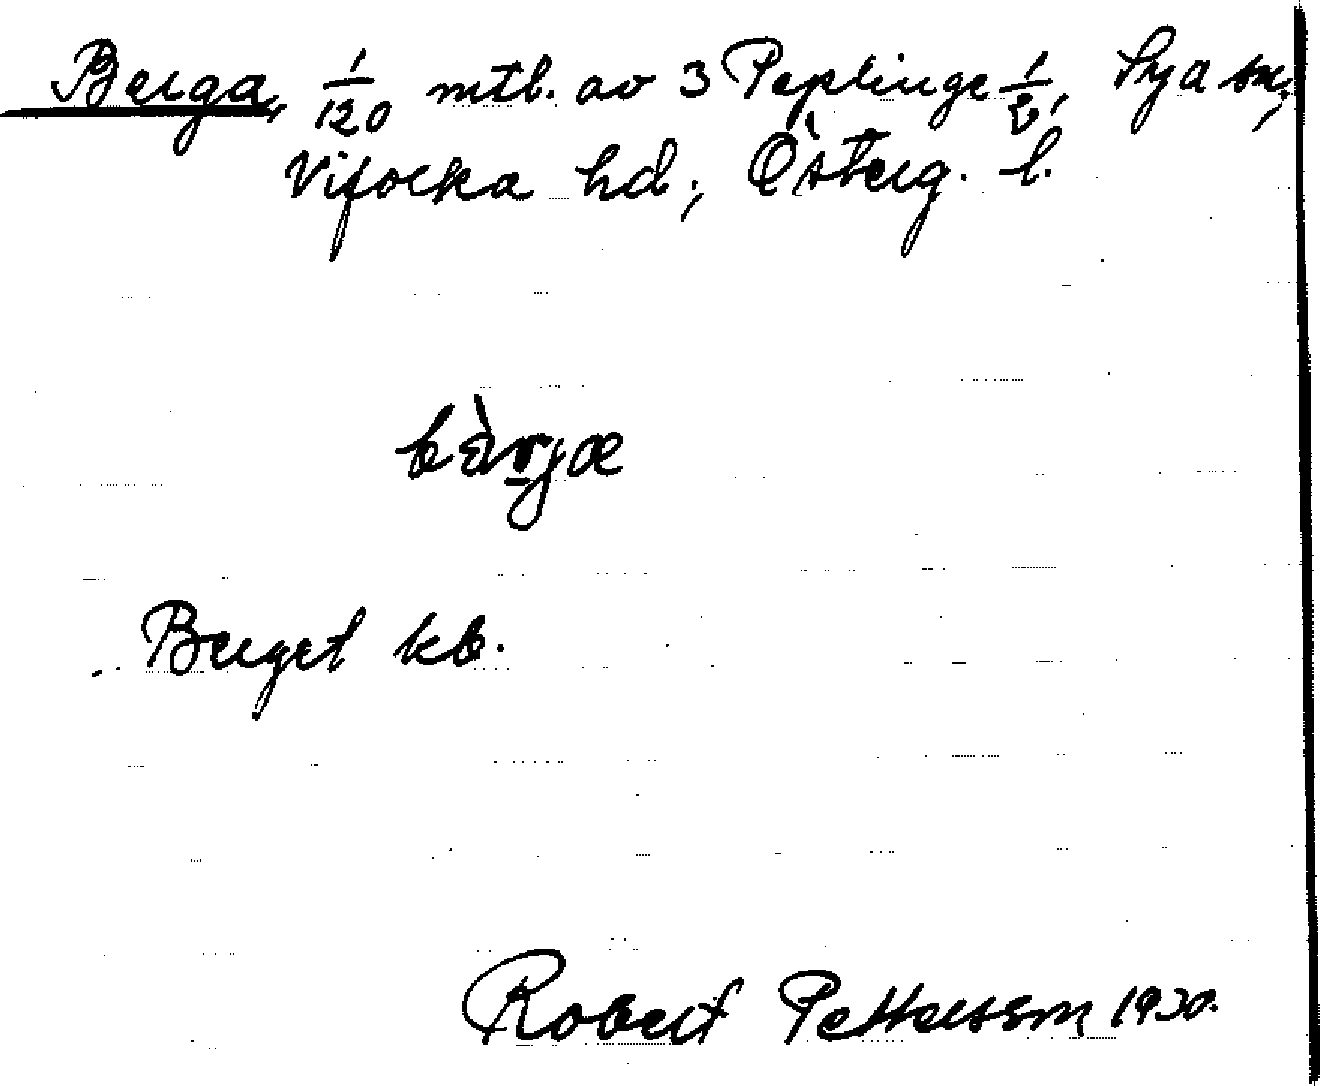 Berga, 1/120 mtl. av 3 Peplinge 1/2, Sya sn,
Vifolka hd, Österg. l.
bæ̀rjæ
Berget kb.
Robert Pettersson 1930.